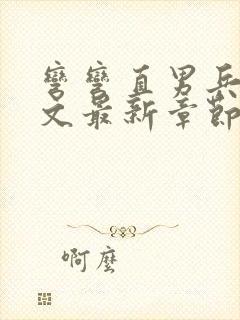 彎彎直男兵
文最新章節
啊麼